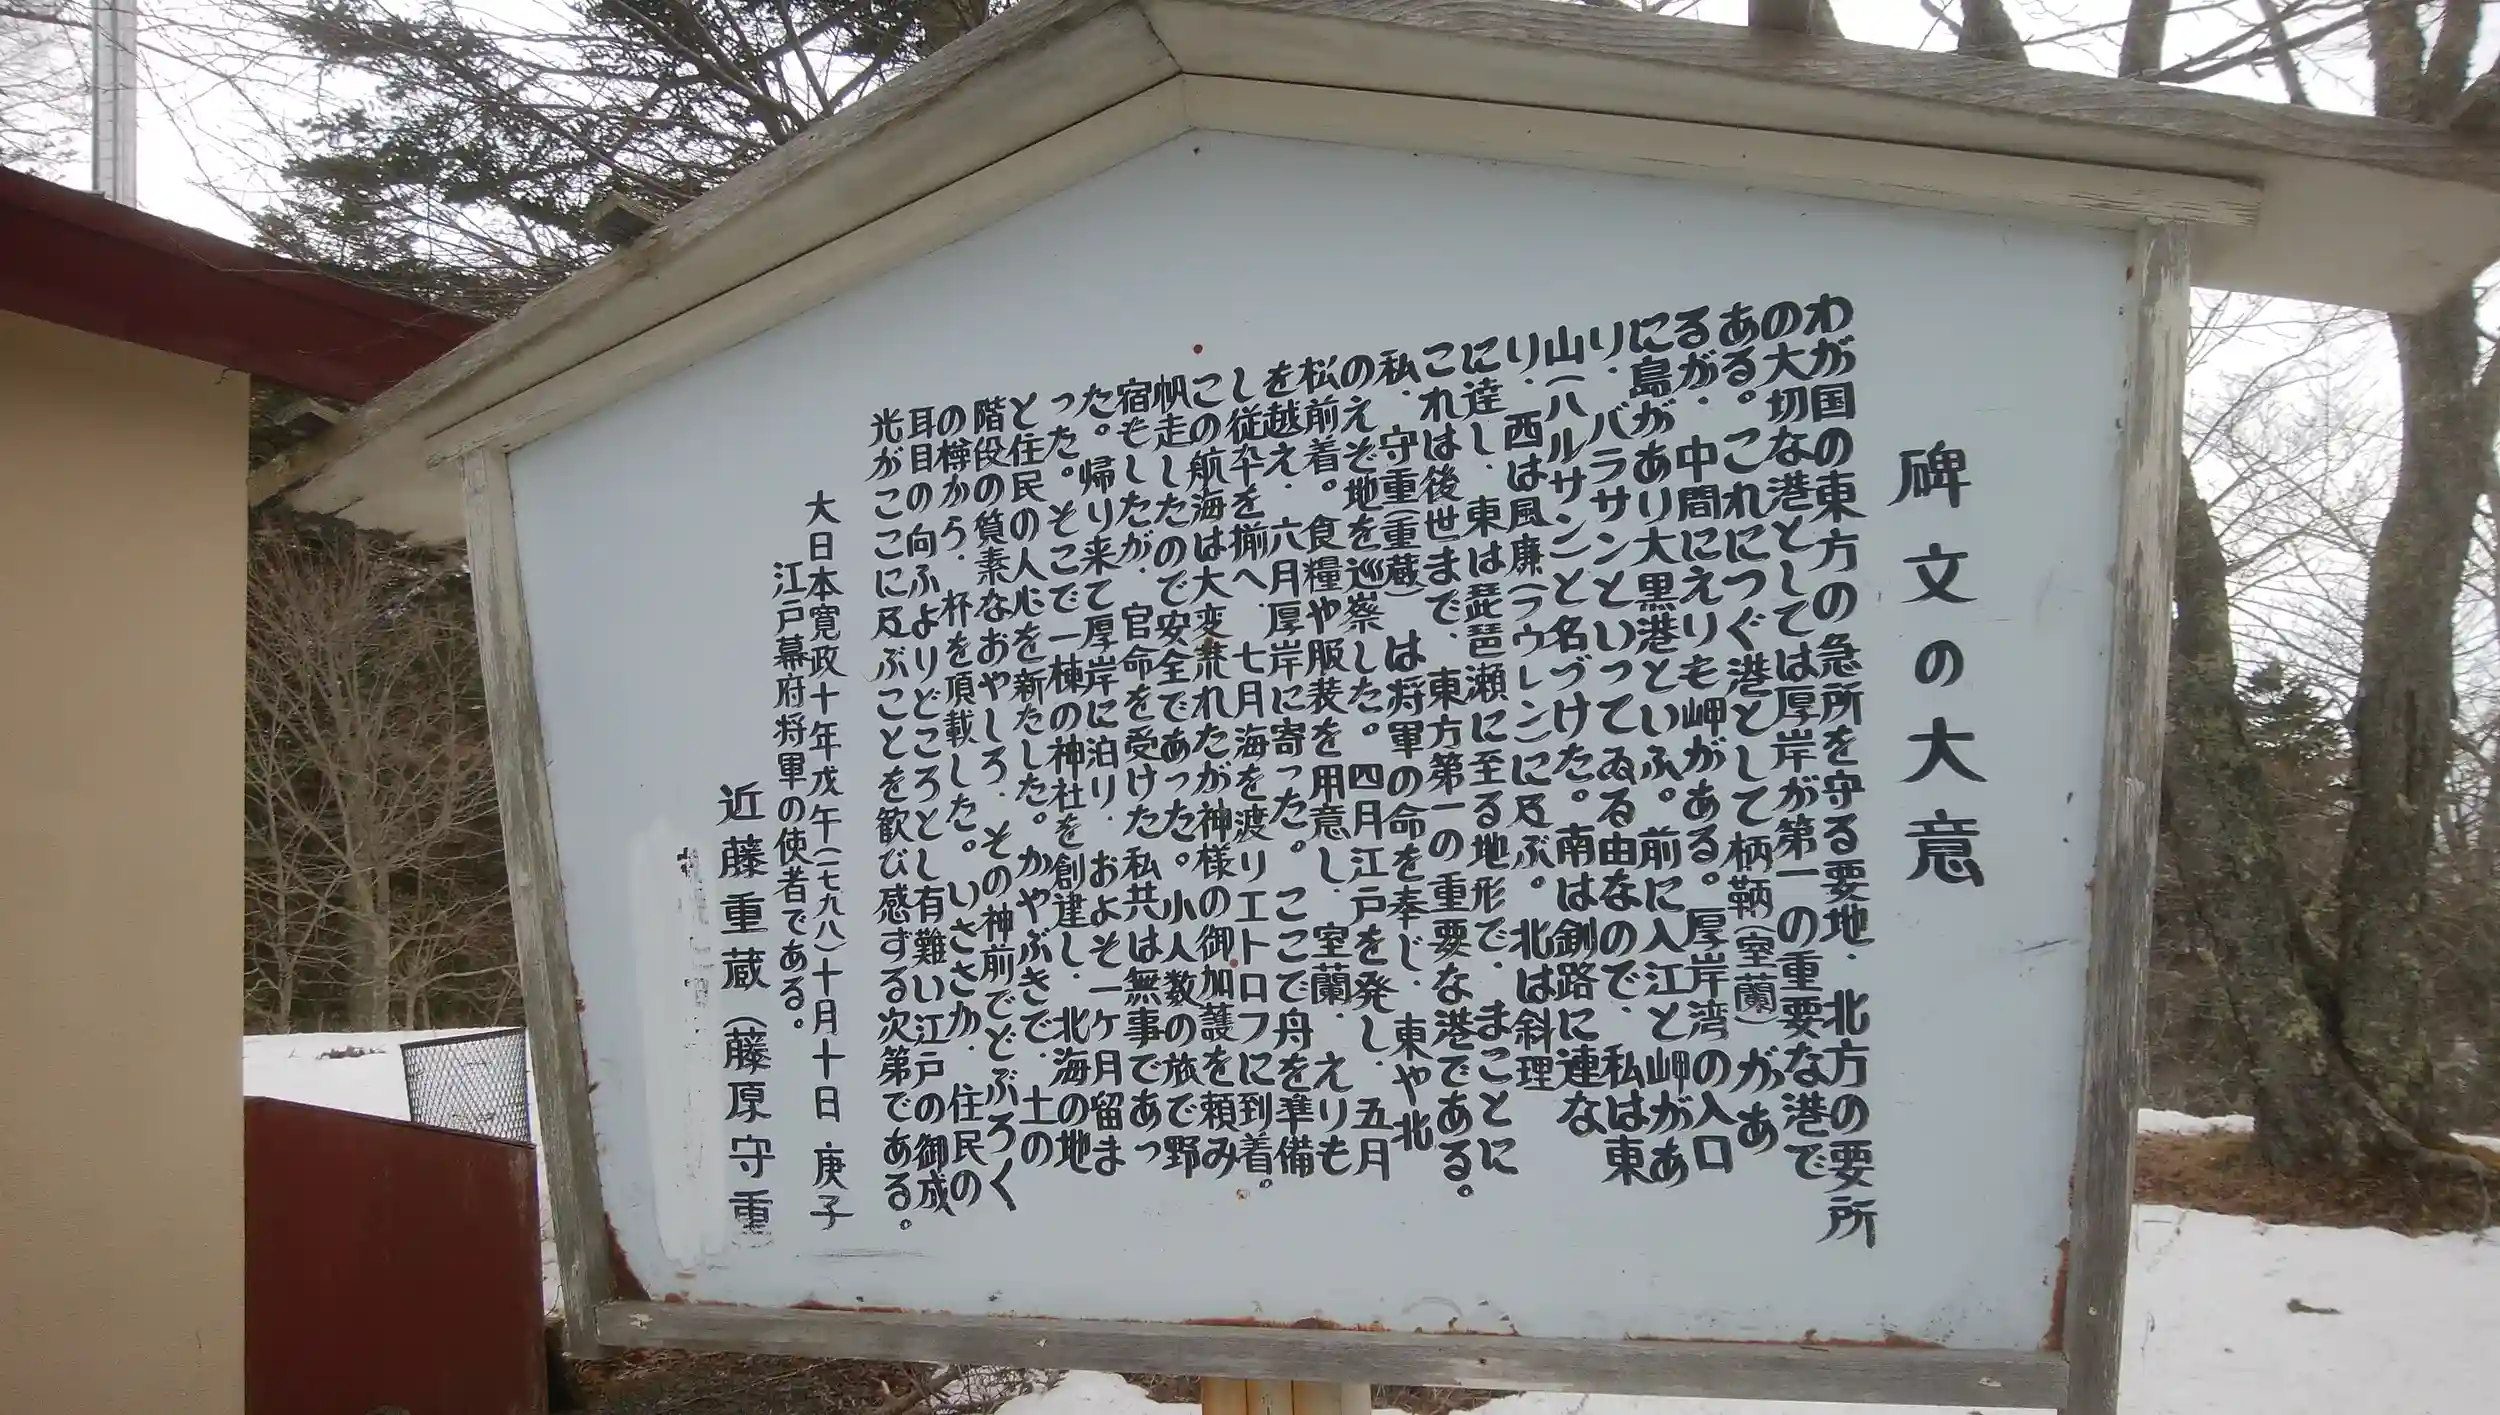 碑文の大意
わが国の東方の急所を守る要地、北方の要所
の大切な港としては厚岸が第一の重要な港で
ある。これにつぐ港として柄鞆(室蘭)があ
るが、中間にえりも岬がある。厚岸湾の入口
に島があり大黒港といふ。前に入江と岬があ
り、バラサンといってゐる由なので、私は東
山(ハルサンと名づけた。南は釧路に連な
り、西は風廉(フウレンに及ぶ。北は斜理
に達し、東は琵琶瀬に至る地形で、まことに
これは後世まで、東方第一の重要な港である。
私、守重(重蔵)は将軍の命を奉じ、東や北
のえぞ地を巡察した。四月江戸を発し、五月
松前着。食糧や服装を用意し、室蘭、えりも
を越え、六月厚岸に寄った。ここで舟を準備
し従卒を揃へ、七月海を渡りエトロフに到着。
この航海は大変荒れたが神様の御加護を頼み
帆走したので安全であった。小人数の旅で野
宿もしたが、官命を受けた私共は無事であっ
た。帰り来て厚岸に泊り、およそ一ケ月留ま
った。そこで一棟の神社を創建し、北海の地
と住民の人心を新たした。かやぶきで、土の
階段の質素なおやしろ、その神前でどぶろく
の樽から、杯を頂載した。いささか、住民の
耳目の向ふよりどころとし有難い江戸の御威
光がここに及ぶことを歓び感ずる次第である。
大日本寛政十年戊午(一七九八)十月十日 庚子
江戸幕府将軍の使者である。
近藤重蔵(藤原守重